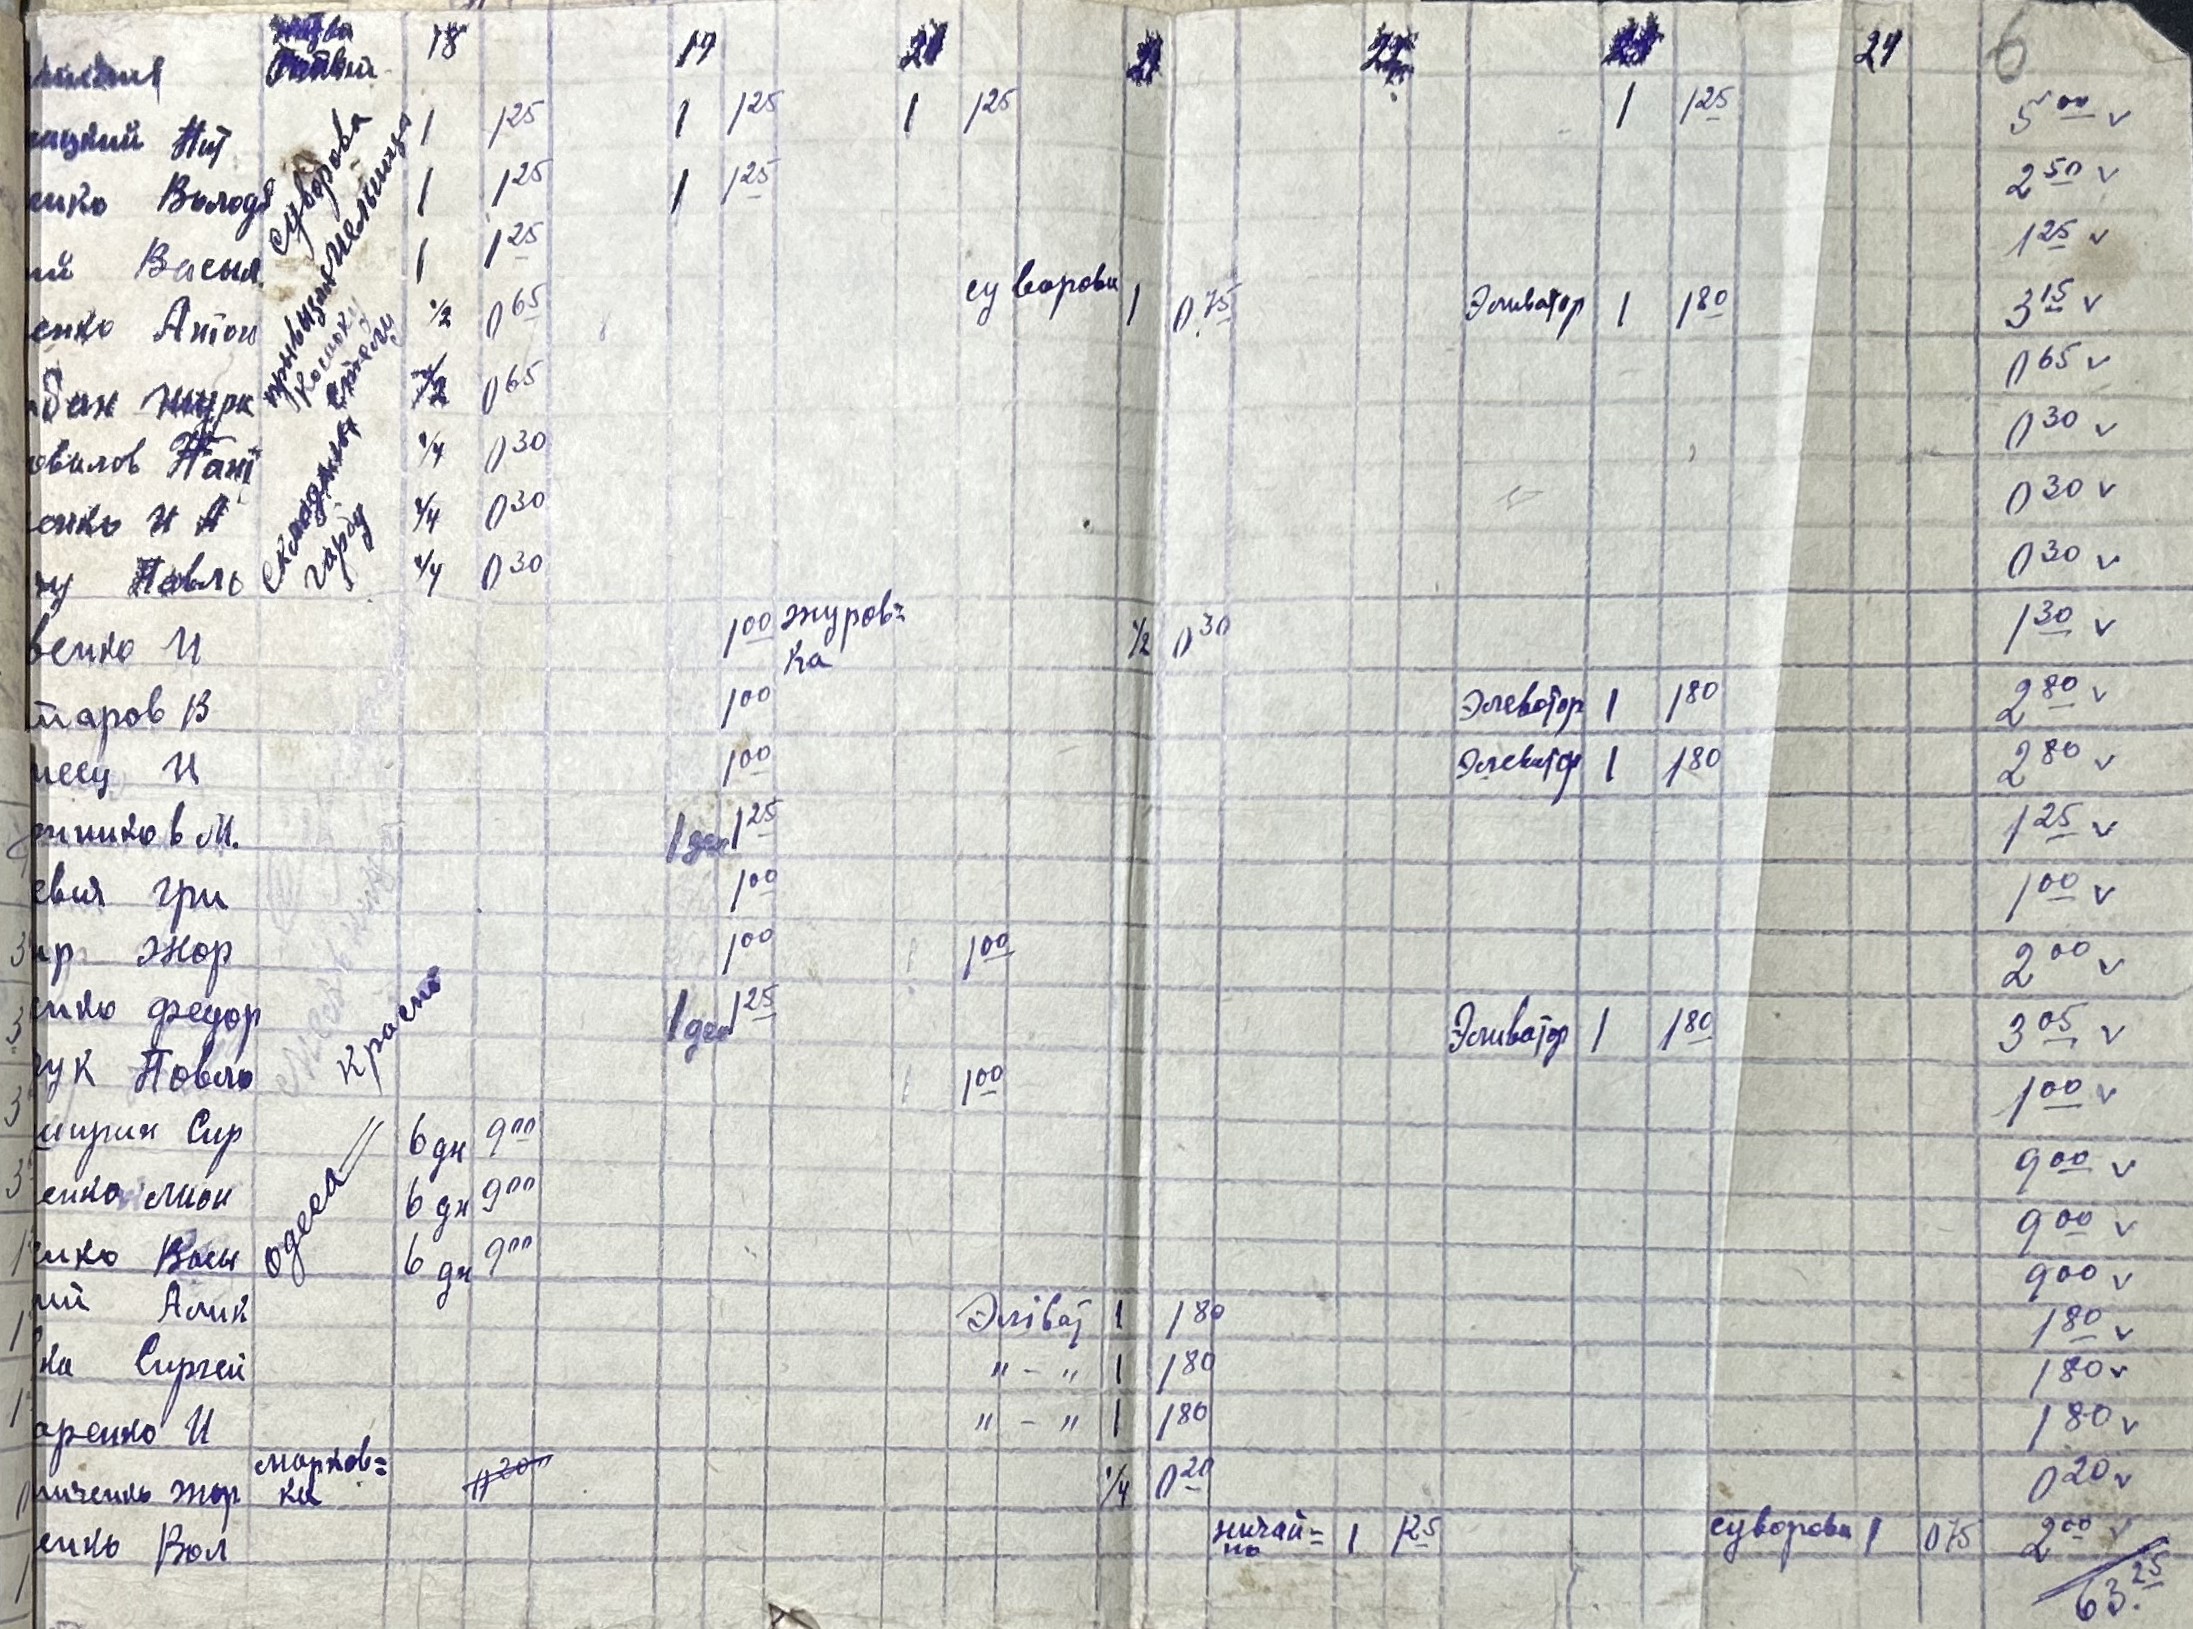 18 19 20 21 22 23 24 6
ацкий 1 1 25 1 1 25 1 1 25 1 1 25 5 00 v
енко Володя 1 1 25 1 1 25 2 50 v
ий Васыл 1 1 25 1 25 v
енко Антон 1/2 0 65 суворова 1 0 75 Эливатор 1 1 80 3 15 v
бан 1/2 0 65 0 65 v
овилов 1/4 0 30 0 30 v
енко И А 1/4 0 30 0 30 v
Павль 1/4 0 30 0 30 v
суворова
венко И 1 00 журов=ка 1/2 0 30 1 30 v
таров В 1 00 Элеватор 1 1 80 2 80 v
И 1 00 Элеватор 1 1 80 2 80 v
нников М. 1 ден 1 25 1 25 v
евич гри 1 00 1 00 v
ир жор 1 00 1 00 2 00 v
енко федор 1 ден 1 25 Эливатор 1 1 80 3 05 v
ук Повло 1 00 1 00 v
красно
Сир 6 дн 9 00 9 00 v
енко 6 дн 9 00 9 00 v
одеса
енко Васы 6 дн 9 00 9 00 v
ий Алик Эліват 1 1 80 1 80 v
ка Сиргей " – " 1 1 80 1 80 v
аренко И " – " 1 1 80 1 80 v
ниченко жор марков=ка 0 20 1/4 0 20 0 20 v
енко Вол ничай=но 1 1 25 суворова 1 0 75 2 00 v
63.25